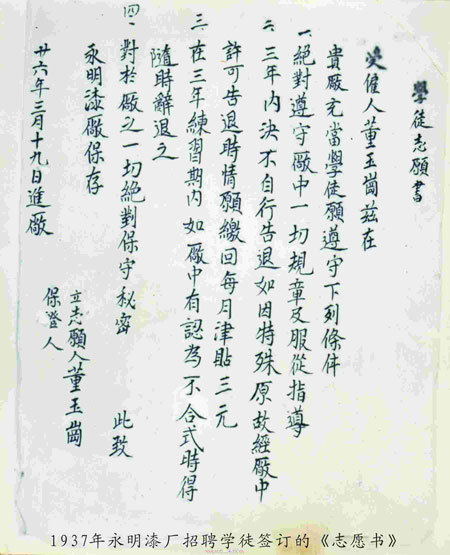 學徒志願書
受僱人董玉崗茲在
貴厰充當學徒願遵守下列條件
一、絕對遵守厰中一切規章及服從指導
二、三年内決不自行告退如因特殊原故經厰中
許可告退時情願繳回每月津貼三元
三、在三年練習期內如厰中有認為不合式時得
隨時辭退之
四、對於厰之一切絕對保守秘密 此致
永明漆厰保存
立志願人董玉崗
保證人
廿六年三月十九日進厰
1937年永明漆厂招聘学徒签订的《志愿书》